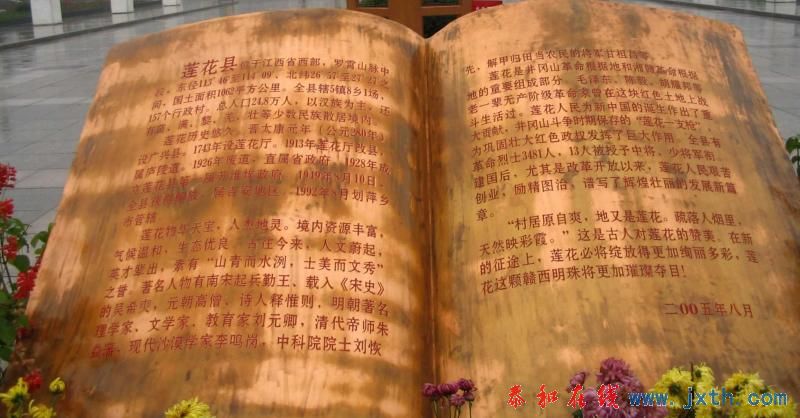 莲花县位于江西省西部，罗霄山脉中
段，东径113°46′至114°09′、北纬26°57′至27°27′之
间，国土面积1062平方公里。全县辖5镇8乡1场，
157个行政村。总人口24.8万人，以汉族为主，还
有苗、满、黎、羌、壮等少数民族散居境内。
莲花历史悠久。晋太康元年（公元280年）
设广兴县。1743年设莲花厅。1913年莲花厅改县，
属庐陵道。1926年废道，直属省政府。1928年成
立莲花县 1949年8月10日，
全县获得解放，属吉安地区。1992年8月划萍乡
市管辖
莲花物华天宝，人杰地灵。境内资源丰富，
气候温和、生态优良。古往今来，人文蔚起，
英才辈出，素有“山青而水洌，士美而文秀”
之誉。著名人物有南宋起兵勤王、载入《宋史》
的吴希奭，元朝高僧、诗人释惟则，明朝著名
理学家、文学家、教育家刘元卿，清代帝师朱
益藩、现代沙漠学家李鸣岗，中科院院士刘恢
先，解甲归田当农民的将军甘祖昌等。
莲花是井冈山革命根据地和湘赣革命根据
地的重要组成部分，毛泽东、陈毅、胡耀邦等
老一辈无产阶级革命家曾在这块红色土地上战
斗生活过。莲花人民为新中国的诞生作出了重
大贡献，井冈山斗争时期保存的“莲花一支枪”，
为巩固壮大红色政权发挥了巨大作用。全县有
革命烈士3481人，13人被授予中将、少将军衔。
建国后，尤其是改革开放以来，莲花人民艰苦
创业，励精图治，谱写了辉煌壮丽的发展新篇
章。
“村居原自爽，地又是莲花。疏落人烟里，
天然映彩霞。”这是古人对莲花的赞美。在新
的征途上，莲花必将绽放得更加绚丽多彩，莲
花这颗赣西明珠将更加璀璨夺目！
二〇〇五年八月
泰和在线 www.jxth.com